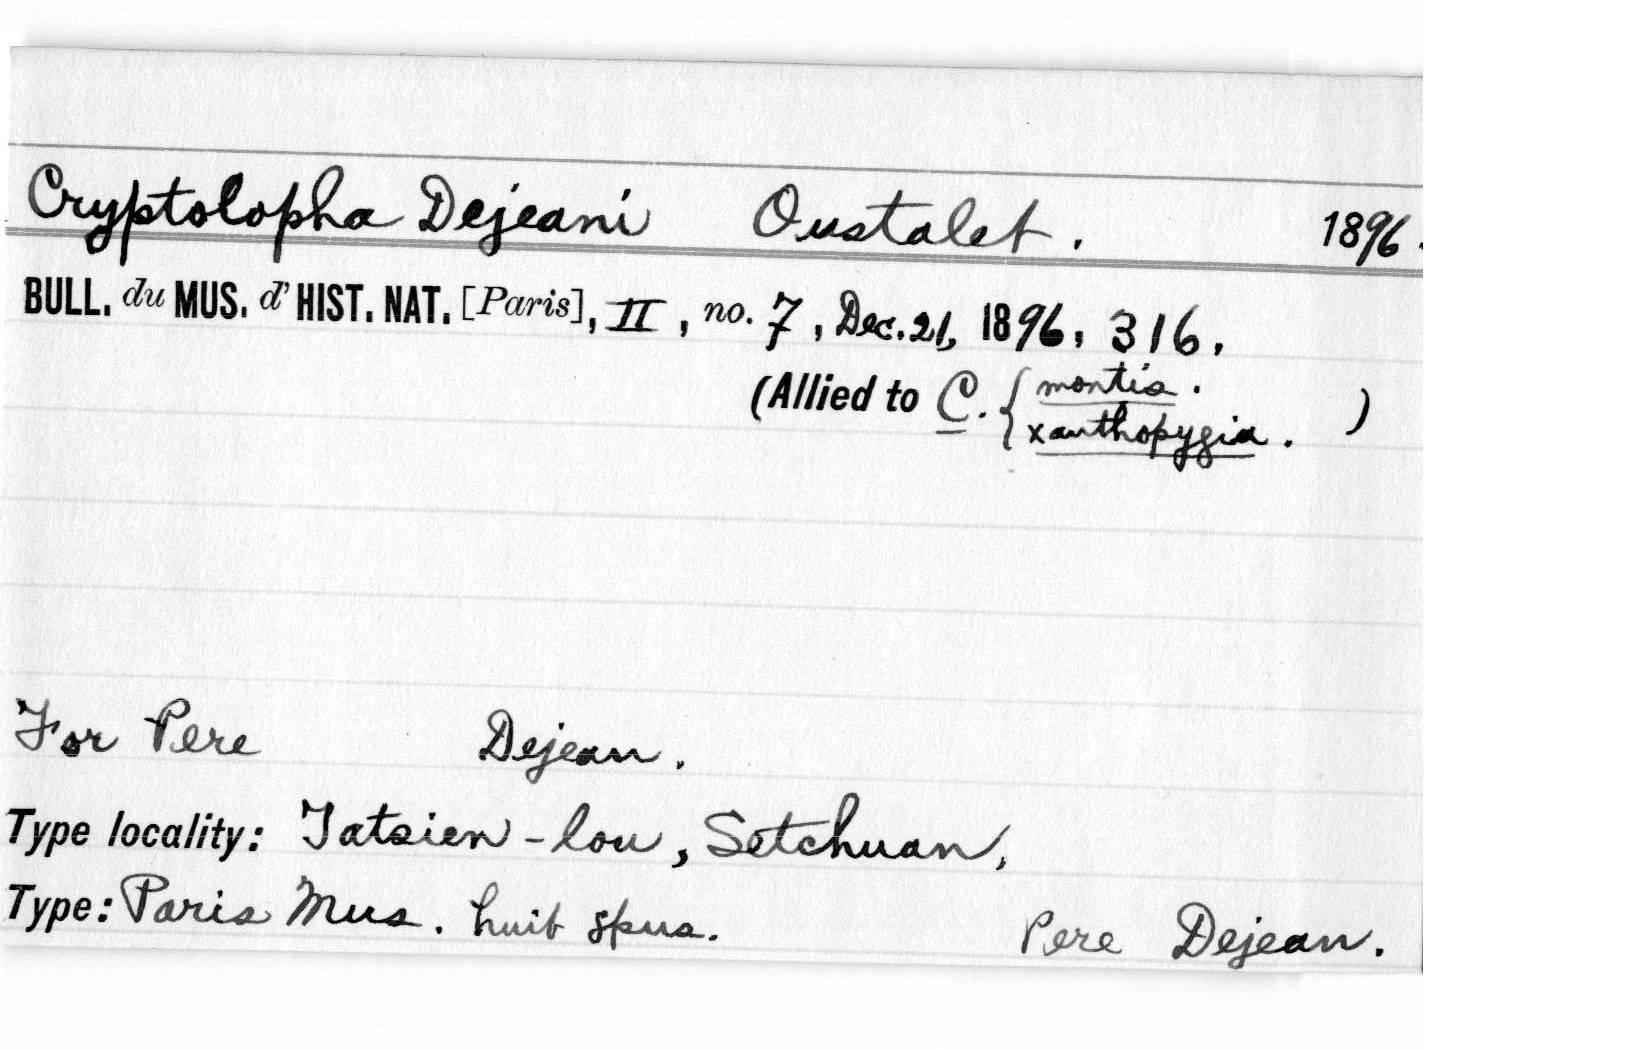 Cryptolopha Dejeani Oustalet. 1896.
BULL. du MUS. d' HIST. NAT. [Paris], II, no. 7, Dec. 21, 1896, 316.
(Allied to C. { montis.
xanthopygia. )
For Pere Dejean.
Type locality: Tatsien-lou, Setchuan,
Type: Paris Mus. huit spns. Pere Dejean.